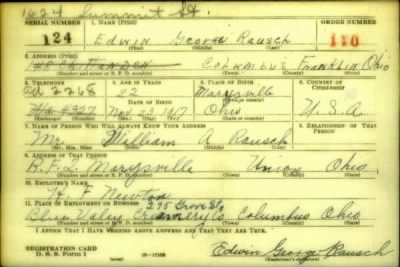 1624 Summit St.
SERIAL NUMBER 1. NAME (Print) ORDER NUMBER
124 Edwin George Rausch 110
(First) (Middle) (Last)
2. ADDRESS (Print)
Chittenden Columbus Franklin Ohio
(Number and street or R. F. D. number) (Town) (County) (State)
3. TELEPHONE 4. AGE IN YEARS 5. PLACE OF BIRTH 6. COUNTRY OF CITIZENSHIP
2268 22 Marysville
DATE OF BIRTH (Town or county)
Nov 23 1917 Ohio U.S.A.
7. NAME OF PERSON WHO WILL ALWAYS KNOW YOUR ADDRESS 8. RELATIONSHIP OF THAT PERSON
Mr. William A Rausch
9. ADDRESS OF THAT PERSON
R.F.2 Marysville Union Ohio
(Number and street or R. F. D. number) (Town) (County) (State)
10. EMPLOYER'S NAME
Newton
11. PLACE OF EMPLOYMENT OR BUSINESS 295 Grove St,
Blue Valley Creamery Co Columbus Ohio
(Number and street or R. F. D. number) (Town) (County) (State)
I AFFIRM THAT I HAVE VERIFIED ABOVE ANSWERS AND THAT THEY ARE TRUE.
REGISTRATION CARD
D. S. S. Form 1
Edwin George Rausch